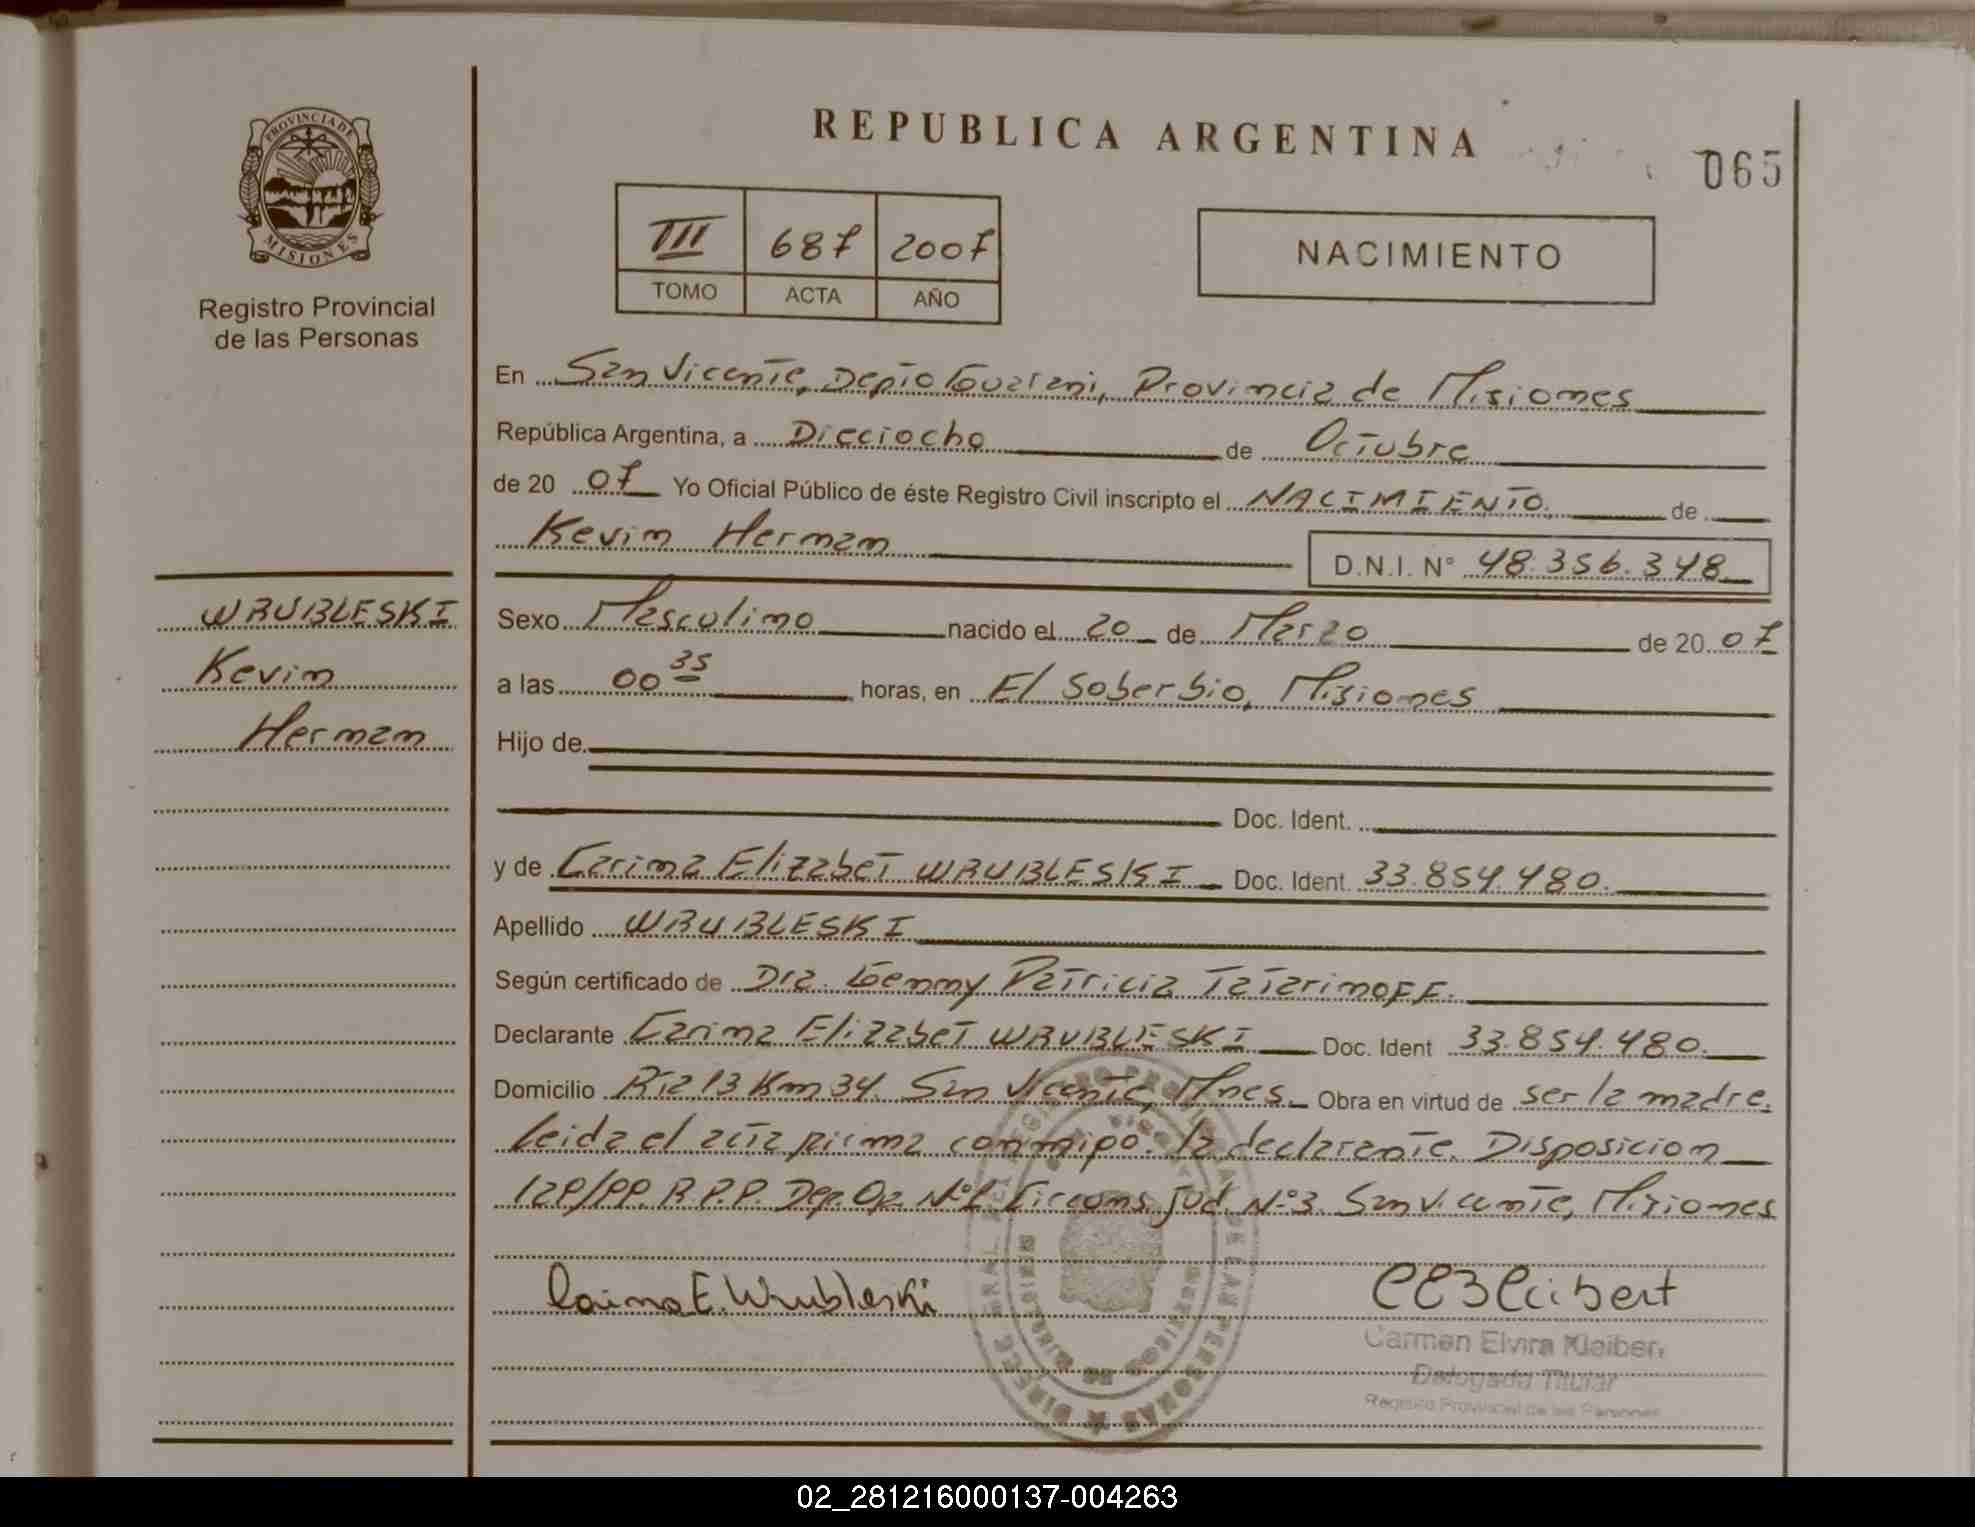 REPUBLICA ARGENTINA
065
PROVINCIA DE
MISIONES
Registro Provincial
de las Personas
III 687 2007
TOMO ACTA AÑO
NACIMIENTO
En San Vicente, Depto Guarani, Provincia de Misiones
República Argentina, a Dieciocho de Octubre
de 20 07 Yo Oficial Público de éste Registro Civil inscripto el NACIMIENTO. de
Kevin Herman
D.N.I. N° 48.356.348
WRUBLESKI
Kevin
Herman
Sexo Masculino nacido el 20 de Marzo de 20 07
a las 00 35 horas, en El Soberbio, Misiones
Hijo de
Doc. Ident.
y de Carina Elizabet WRUBLESKI Doc. Ident. 33.854.480.
Apellido WRUBLESKI
Según certificado de Dra. Genny Patricia TatarinoFF.
Declarante Carina Elizabet WRUBLESKI Doc. Ident 33.854.480.
Domicilio Rta 13 Km 34. San Vicente, Mnes. Obra en virtud de ser la madre.
Leida el acta firma conmigo. la declarante. Disposicion
129/99. R.P.P. Dep. Op. Nº1 Circuns. Jud. N:º3. San Vicente, Misiones
Carina E. Wrubleski
Carmen Elvira Kleibert
Delegada Titular
Registro Provincial de las Personas
02_281216000137-004263